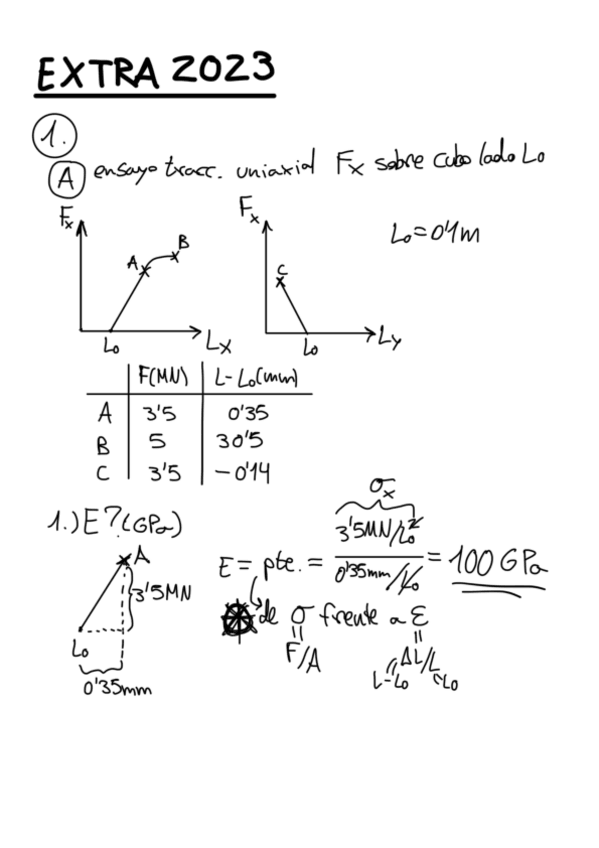 EXTRA 2023
1.
A ensayo tracc. uniaxial Fx sobre cubo lado Lo
Fx
A
B
Lo
Lx
Fx
C
Lo
Ly
Lo=0'1m
F(MN) L-Lo(mm)
A 3'5 0'35
B 5 30'5
C 3'5 -0'14
1.) E? (GPa)
A
3'5MN
Lo
0'35mm
σx
E = pte. = 3'5MN/Lo² / 0'35mm/Lo = 100 GPa
de σ frente a ε
=
F/A
=
ΔL/L
L-Lo
Lo